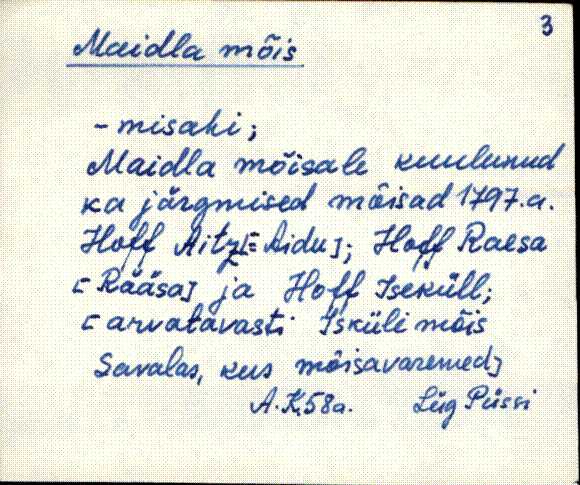 3
Maidla mõis
- misahi;
Maidla mõisale kuulunud
ka järgmised mõisad 1797.a.
Hoff Aitz [= Aidu]; Hoff Raesa
[Rääsa] ja Hoff Iseküll;
[arvatavasti Isküli mõis
Savalas, kus mõisavaremed]
A.K.58a. Lüg Püssi